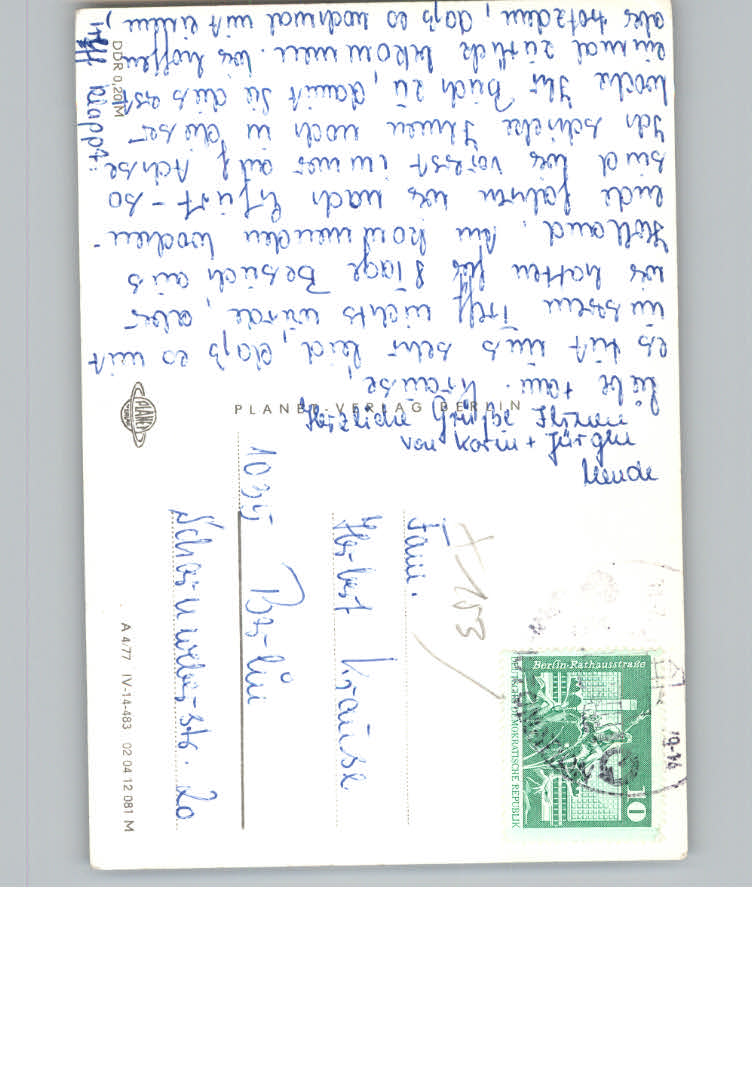 Liebe Fam. Krause,
es tut uns sehr leid, daß es mit
unserem Treff nichts wurde, aber
wir hatten für 8 Tage Besuch aus
Holland. Am kommenden Wochen-
ende fahren wir nach Erfurt – so
sind wir vorerst immer auf Achse
Ich schicke Ihnen noch in dieser
Woche Ihr Buch zu, damit Sie es erst
einmal zurück bekommen. Wir hoffen
aber trotzdem, daß es nochmal mit einem
Treff klappt.
Herzliche Grüße Ihnen
von Karin + Jürgen
Mende
DDR 0,20 M
PLANET-VERLAG BERLIN
PLANET
VERLAG
A 4/77 IV-14-483 02 04 12 081 M
Fam.
Herbert Krause
1035 Berlin
Scharnweberstr. 20
+ 153
Berlin-Rathausstraße
10
DEUTSCHE DEMOKRATISCHE REPUBLIK